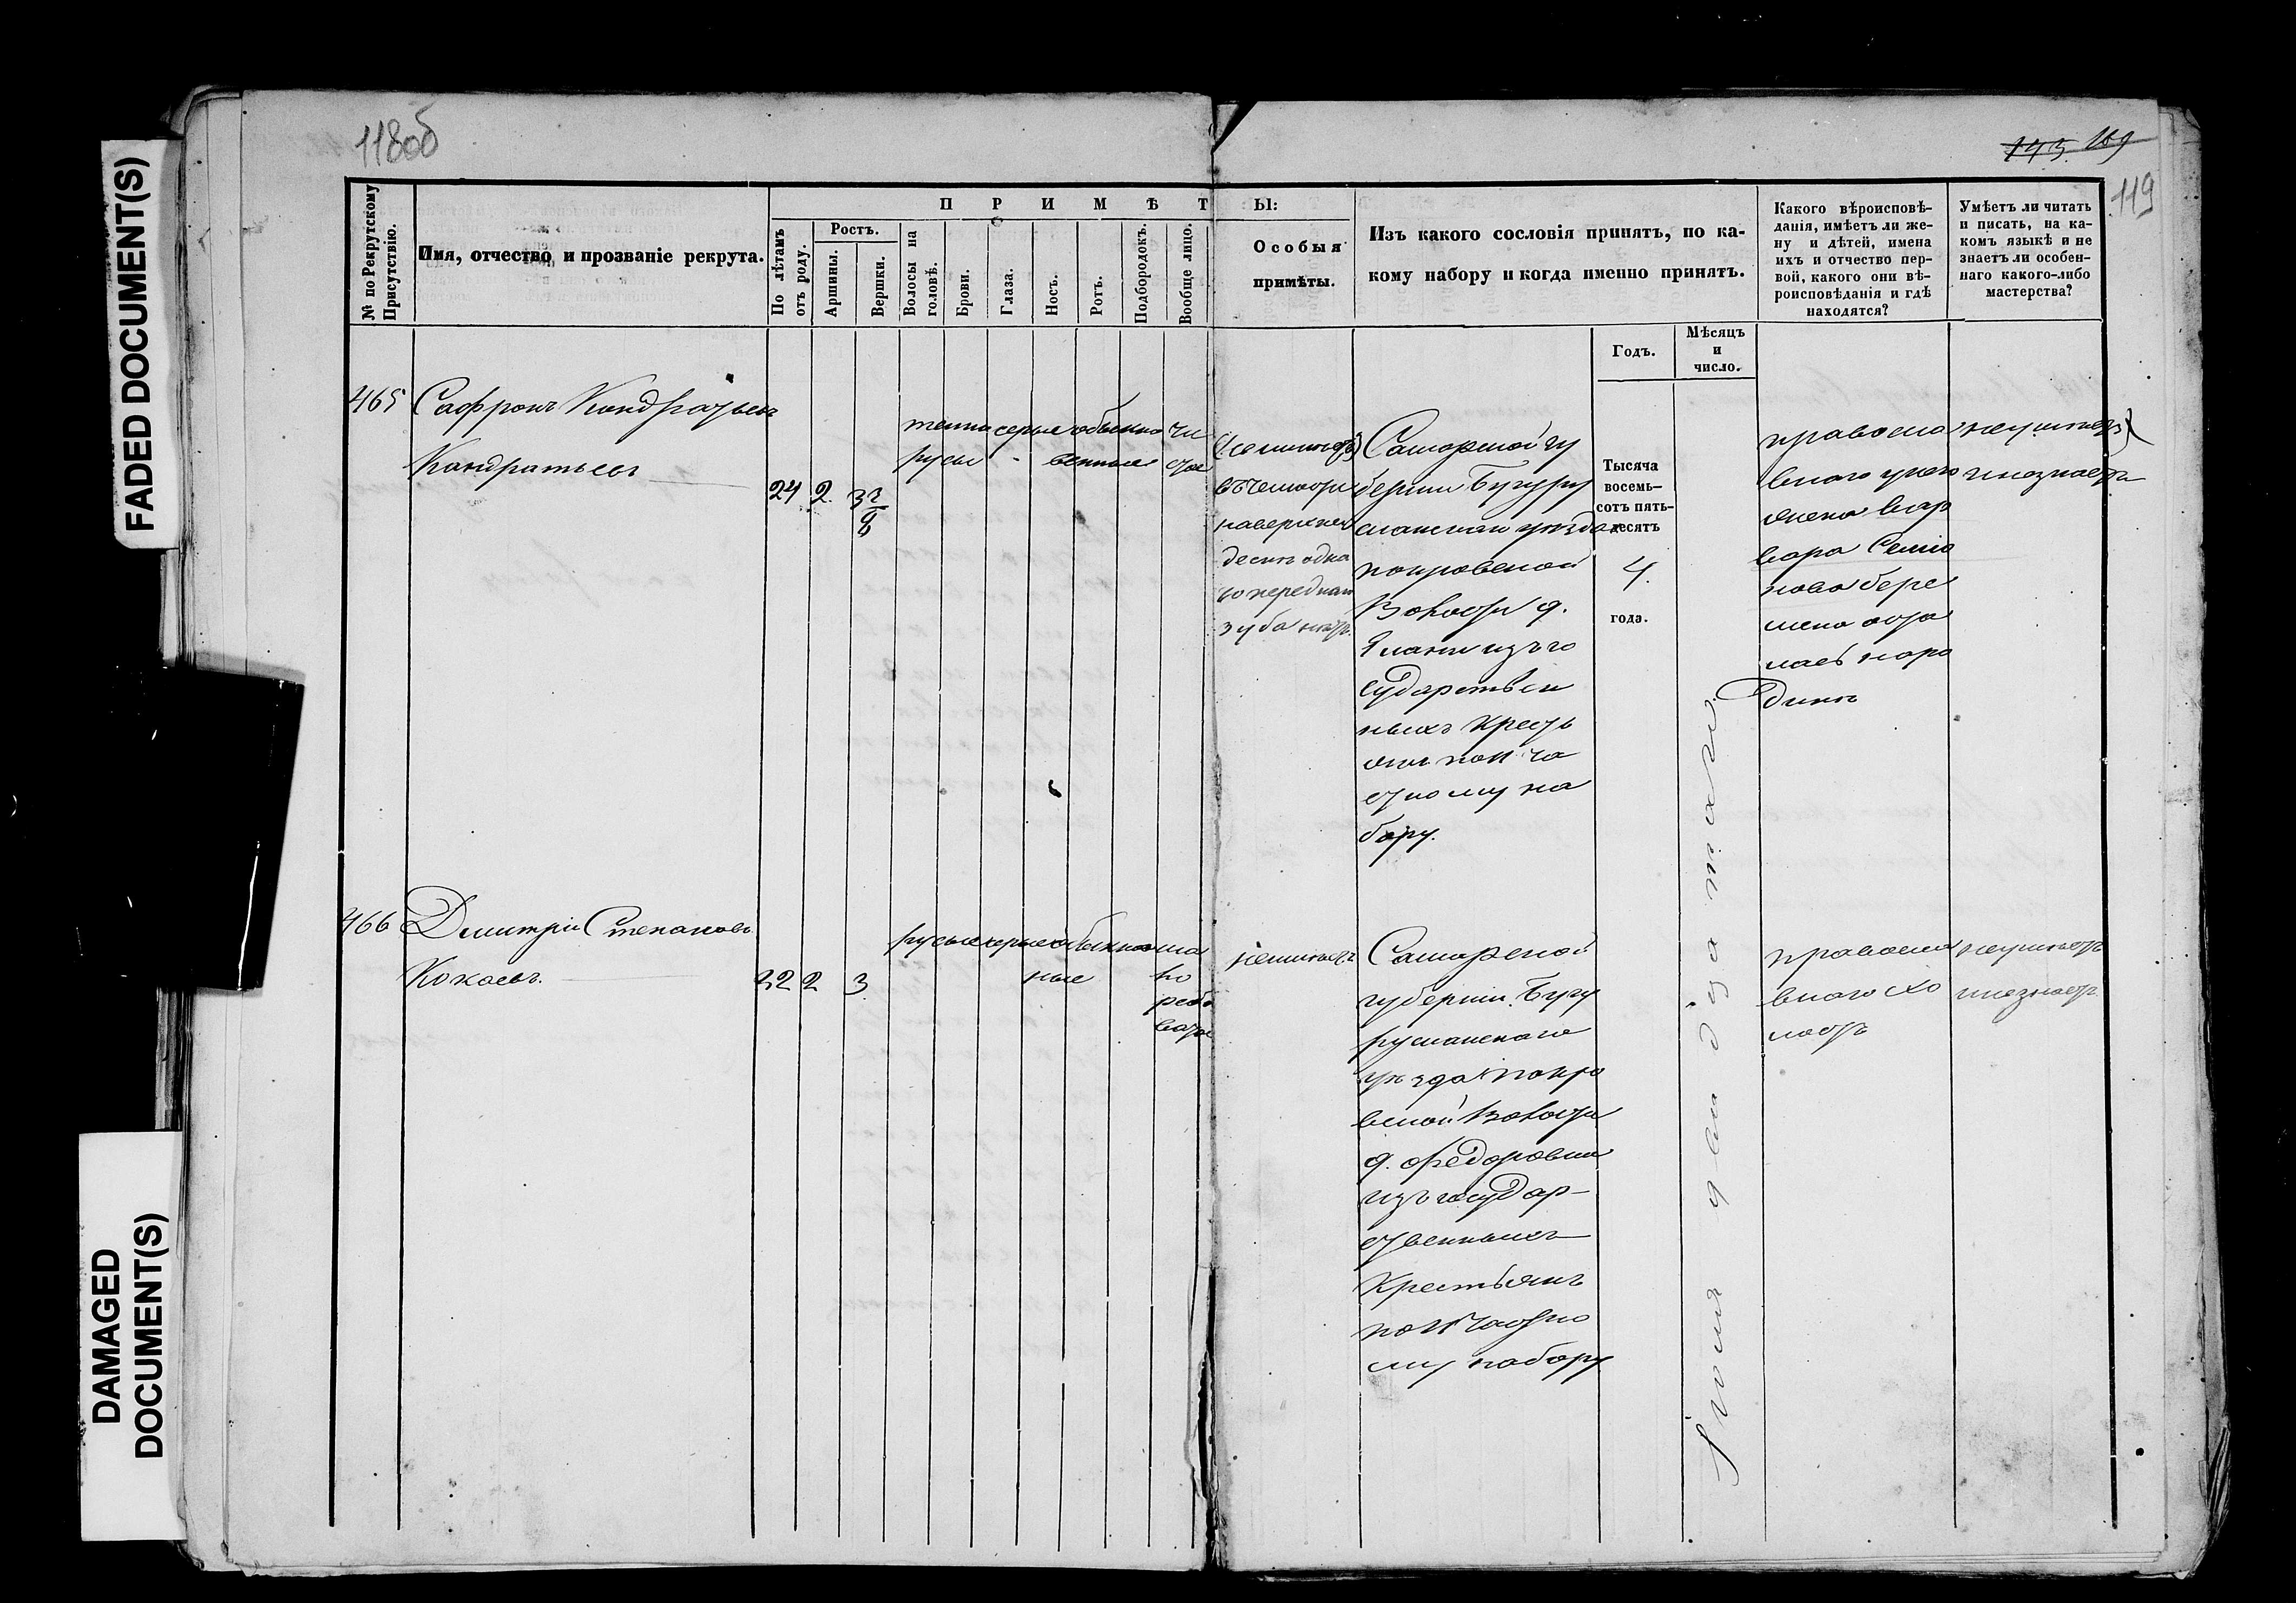 FADED DOCUMENT(S)
DAMAGED
DOCUMENT(S)
118об
119
№ по Рекрутскому
Присутствію.
Имя, отчество и прозваніе рекрута.
ПРИМѢТЫ:
По лѣтамъ
отъ роду.
Ростъ.
Аршины.
Вершки.
Волосы на
головѣ.
Брови.
Глаза.
Носъ.
Ротъ.
Подбородокъ.
Вообще лицо.
Особыя
примѣты.
Изъ какого сословія принятъ, по ка-
кому набору и когда именно принятъ.
Годъ.
Мѣсяцъ
и
число.
Какого вѣроисповѣ-
данія, имѣетъ ли же-
ну и дѣтей, имена
ихъ и отчество пер-
вой, какого они вѣ-
роисповѣданія и гдѣ
находятся?
Умѣетъ ли читать
и писать, на ка-
комъ языкѣ и не
знаетъ ли особен-
наго какого-либо
мастерства?
465
Сафронъ Кондратьевъ
Кондратьевъ
24
2
3 2/8
темно серые обыкно чи
русы венные стое
наверхней
десне одна
го передняго
зуба нетъ.
Самарской гу
берніи Бугуру
сланскаго уезда
покровской
Волости д.
изъ го
сударствен
ныхъ кресть
янъ по 11 ча
стному на
бору.
Тысяча
восемь-
сотъ пять-
десятъ
4.
года.
православ
наго у него
жена Вар
вара Семио
нова бере
мена оста
лась на ро
дине
неумѣетъ
и незнаетъ
Іюня два дцатаго
466
Дмитрій Степановъ
Кокаевъ.
22
2
3
русые серые обыкно ма
ные ло
рябо
ватое
неимѣетъ
Самарской
губерніи Бугу
русланскаго
уезда покро
вской Волости
д. Федоровки
изъ государ-
ственныхъ
Крестьянъ
по 11 частно
му набору
православ
наго хо
лостъ
неумѣетъ
и незнаетъ